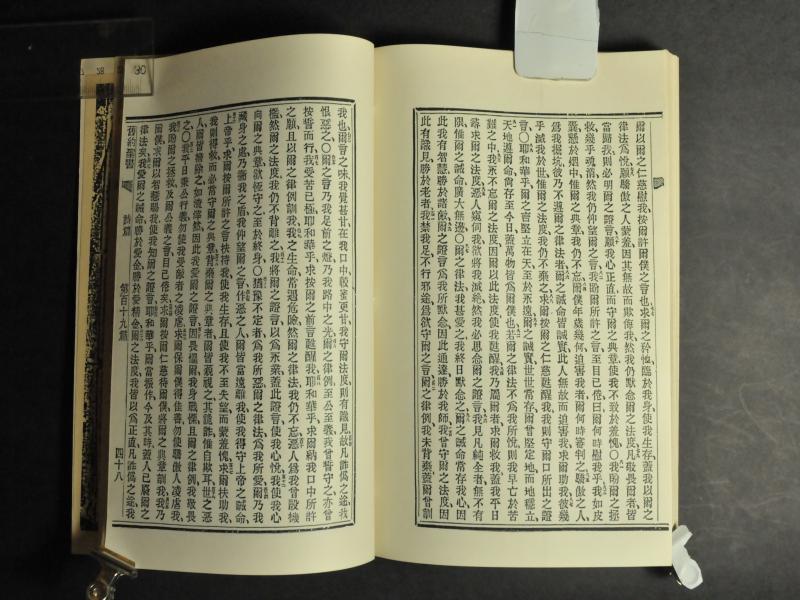 爾以爾之仁慈慰我按許爾僕之言也求爾之矜恤臨於我身使我生存蓋我以爾之
律法爲悅願驕傲之人蒙羞因其無故而欺侮我然我仍默念爾之法度凡敬畏爾者皆
當歸我則必明爾之證言願我心正直而守爾之典章使我不致於羞愧〇我盼爾之拯
救幾乎魂消然我仍仰望爾之言我盼爾所許之言至目已倦曰爾何時慰我乎我如皮
囊懸於烟中惟爾之典章我仍不忘爾僕年歲幾何迫害我者爾何時審判之驕傲之人
爲我掘坑彼乃不遵爾之律法者爾之誡命皆誠實此人無故而迫害我求爾助我彼幾
乎滅我於世惟爾之法度我仍不棄之求爾按爾之仁慈甦醒我我則守爾口所出之證
言〇耶和華乎爾之言堅立在天至於永遠爾之誠實世世常存爾曾堅定地而地穩立
天地遵爾命尙存至今日蓋萬物皆爲爾僕也若爾之律法不爲我所悅則我早亡於苦
難之中我永不忘爾之法度因爾以此法度使我甦醒我乃屬爾者求爾救我蓋我平日
尋求爾之法度惡人窺伺我欲將我滅絕然我必思念爾之證言我見凡純全者無不有
限惟爾之誡命廣大無邊〇爾之律法我甚愛之我終日默念之爾之誡命常存我心因
此我有智慧勝於諸敵爾之證言爲我思念因此通達勝於我師我曾守爾之法度因
此有識見勝於老者我禁我足不行邪途爲欲守爾之言爾之律例我未背棄蓋爾曾訓
我也爾言之味我覺甚甘在我口中較蜜更甘我守爾法度則有識見故凡詐僞之途我
恨惡之〇爾之言乃我足前之燈乃我路中之光爾之律例至公至義我曾誓守之亦曾
按誓而行我受苦已極耶和華乎求按爾之前言甦醒我耶和華乎求爾納我口中所許
之願且以爾之律例訓我我之生命常遇危險然爾之律法我仍不忘惡人爲我曾設機
檻然爾之法度我仍不背離之我將爾之證言以爲永業蓋此證言使我心悅我傾心
向爾之典章欲恆守之至於終身〇猶豫不定者爲我所惡爾之律法爲我所愛爾乃我
藏身之處乃衞我之盾我仰望爾之言作惡之人爾皆當遠離我使我得守上帝之誡命
上帝乎求爾按爾所許之言扶持我使我生存且使我不至失望而蒙羞愧求爾扶助我
我則得救而必常守爾之典章背棄爾之典章者爾皆藐視之其詭詐惟自欺耳世之惡
人爾皆掃除之如渣滓然因此我愛爾之證言因畏懼爾我身戰慄且爾之律例我敬畏
之〇我平日秉公行義勿使我受敵者之凌虐求爾保爾僕得佳善勿使驕傲人凌虐我
我盼爾之拯救及爾公義之言目已倦矣求爾按爾仁慈待爾僕將爾之典章訓我我乃
爾僕求爾以智慧賜我使我知爾之證言耶和華乎爾當振作今及其時蓋人已廢爾之
律法矣我愛爾之誡命勝於愛金勝於愛精金爾之法度我皆以爲正直凡詐僞之途我
舊約聖書
詩篇 第百十九篇 四十八